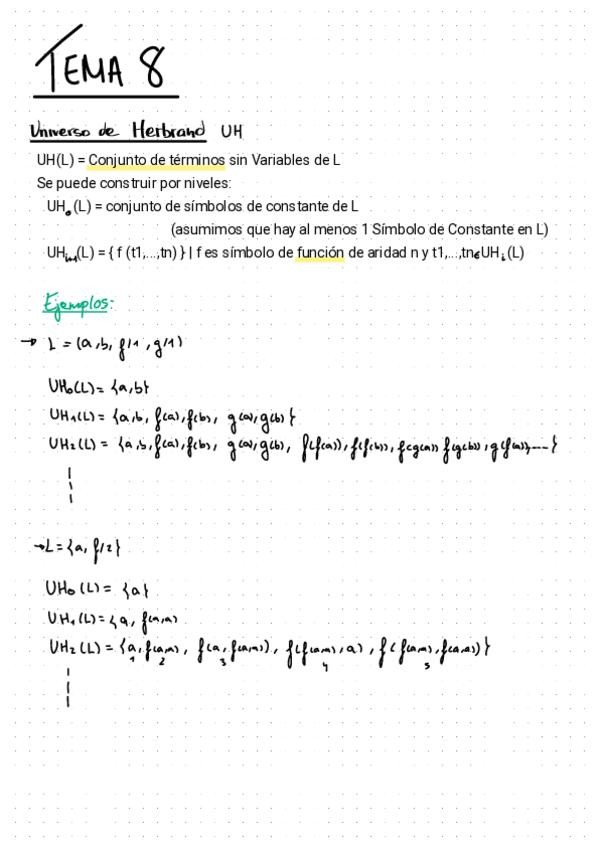 TEMA 8
Universo de Herbrand UH
UH(L) = Conjunto de términos sin Variables de L
Se puede construir por niveles:
UH₀(L) = conjunto de símbolos de constante de L
(asumimos que hay al menos 1 Símbolo de Constante en L)
UHᵢ₊₁(L) = { f (t1,...,tn) } | f es símbolo de función de aridad n y t1,...,tn∈UHᵢ(L)
Ejemplos:
→ L = (a,b, f/1, g/1)
UH₀(L) = {a,b}
UH₁(L) = {a,b, f(a), f(b), g(a), g(b)}
UH₂(L) = {a,b, f(a), f(b), g(a), g(b), f(f(a)), f(f(b)), f(g(a)) f(g(b)), g(f(a)),----}
→ L = {a, f/2}
UH₀(L) = {a}
UH₁(L) = {a, f(a,a)
UH₂(L) = {a, f(a,a), f(a, f(a,a)), f(f(a,a), a), f(f(a,a), f(a,a))}
1 2 3 4 5